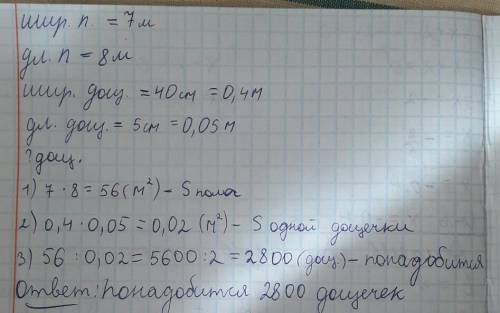 шир. п. = 7м
дл. п = 8м
шир. дощ. = 40см = 0,4м
дл. дощ. = 5см = 0,05м
? дощ.
1) 7 · 8 = 56 (м²) - S пола
2) 0,4 · 0,05 = 0,02 (м²) - S одной дощечки
3) 56 : 0,02 = 5600 : 2 = 2800 (дощ.) - понадобится
Ответ: понадобится 2800 дощечек